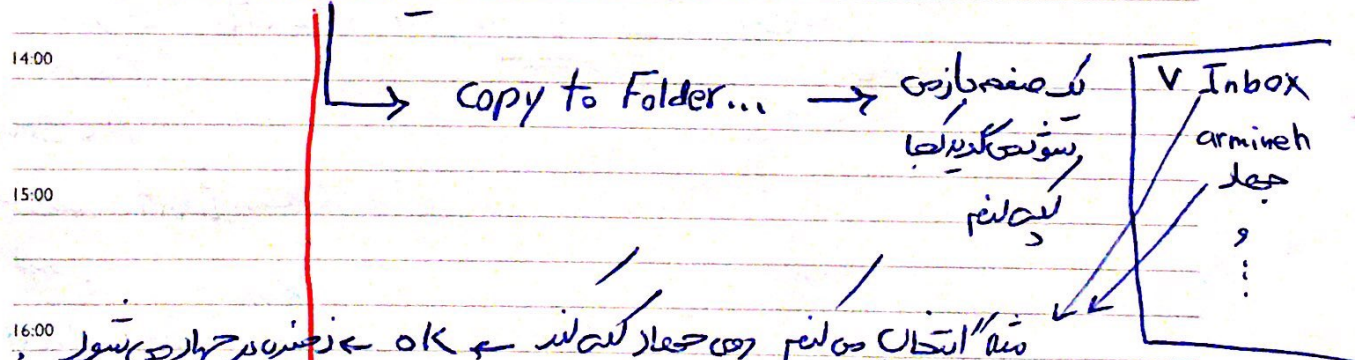 14:00
Copy to Folder... → یک صفحه باز می
شود می گوید کجا
کپی کنم
V Inbox
armineh
جهاد
و
⋮
15:00
16:00 مثلاً انتخاب می کنم روی جهاد کپی کند ← ok ← ذخیره در جهاد می شود